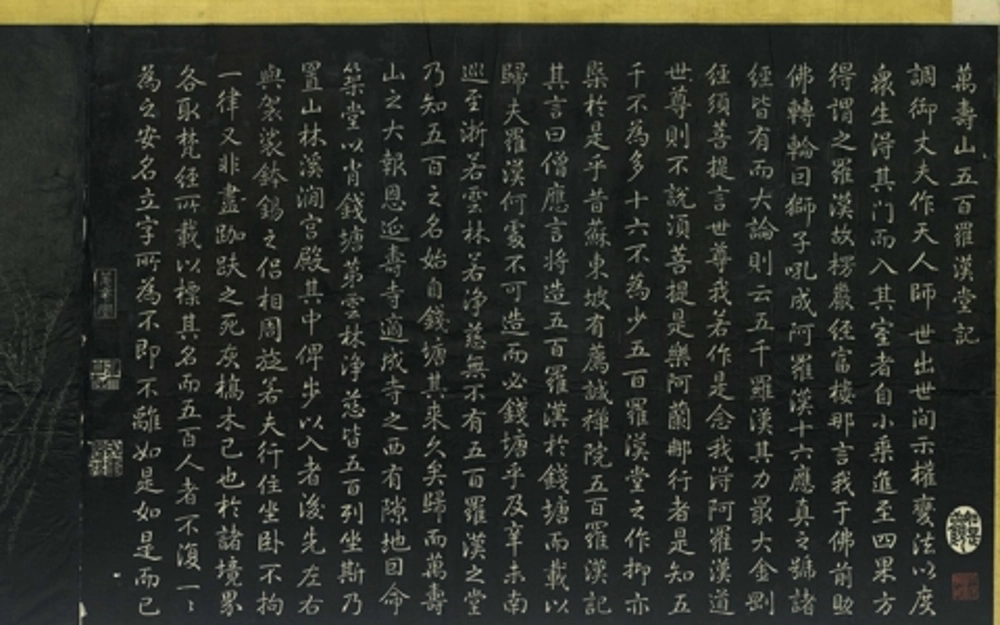 萬壽山五百羅漢堂記
調御丈夫作天人師世出世间示權變法以度
衆生得其门而入其室者自小乘進至四果方
得謂之羅漢故楞嚴經富樓那言我于佛前助
佛轉輪曰獅子吼成阿羅漢十六應真之號諸
經皆有而大論則云五千羅漢其力最大金剛
經須菩提言世尊我若作是念我得阿羅漢道
世尊則不說湏菩提是樂阿蘭那行者是知五
千不為多十六不為少五百羅漢堂之作抑亦
於是乎昔蘇東坡有薦誠禅院五百羅漢記
其言曰僧應言将造五百羅漢於錢塘而載以
歸夫羅漢何處不可造而必錢塘乎及辛未南
巡至浙若雲林若净慈無不有五百羅漢之堂
乃知五百之名始自錢塘其来久矣歸而萬壽
山之大報恩延壽寺適成寺之西有隙地因命
築堂以肖錢塘第雲林净慈皆五百列坐斯乃
置山林溪澗宫殿其中俾步以入者後先左右
與袈裟鉢錫之侣相周旋若夫行住坐卧不拘
一律又非盡跏趺之死灰槁木已也於諸境界
各取梵经所載以標其名而五百人者不復一〻
為之安名立字所為不即不離如是如是而已